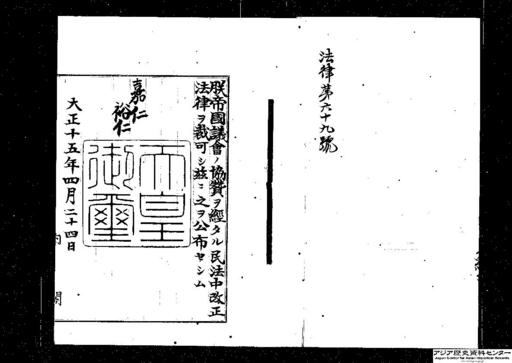 法律第六十九號
朕帝國議會ノ協賛ヲ經タル民法中改正
法律ヲ裁可シ茲ニ之ヲ公布セシム
嘉仁
裕仁
天皇御璽
大正十五年四月二十四日
内閣
アジア歴史資料センター
Japan Center for Asian Historical Records